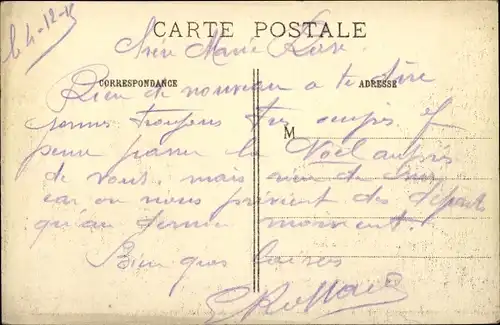 le 4-12-15
CARTE POSTALE
Marie Rose
CORRESPONDANCE
ADRESSE
Rien de nouveau a te dire
sommes toujours très occupés et
M
pense passer la Noël auprès
de vous. mais rien de sur
car on nous prévient des départs
qu'au dernier moment.
Bien gros baisers